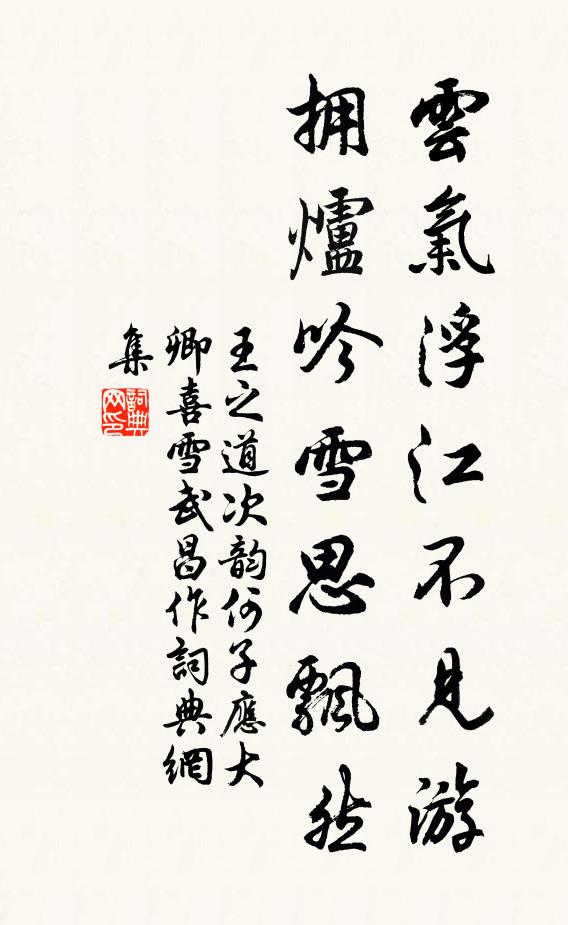 雲氣浮江不見游
拥爐吟雪思飄然
王之道次韵何子應大
卿喜雪武昌作詞典網
集
詞典网印